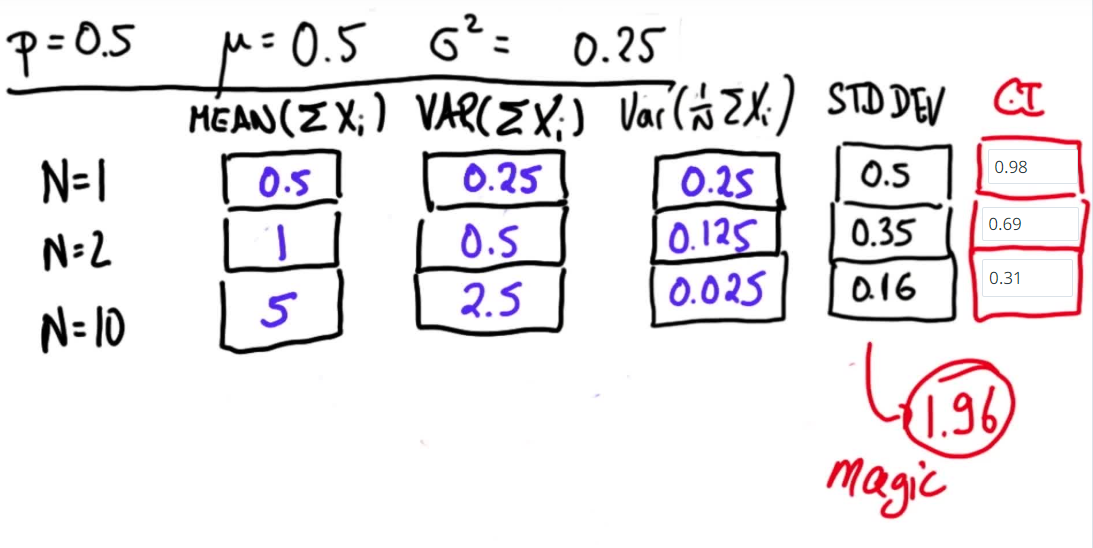 p = 0.5 μ = 0.5 σ² = 0.25
MEAN(ΣXᵢ) VAR(ΣXᵢ) Var(1/N ΣXᵢ) STD DEV CI
N=1 0.5 0.25 0.25 0.5 0.98
N=2 1 0.5 0.125 0.35 0.69
N=10 5 2.5 0.025 0.16 0.31
1.96
magic